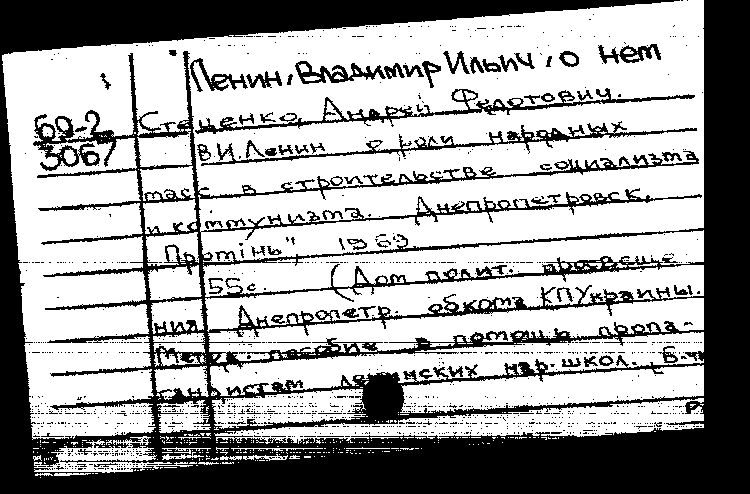 Ленин, Владимир Ильич, о нем
69-2
3067
Стеценко, Андрей Федотович.
В.И.Ленин о роли народных
масс в строительстве социализма
и коммунизма. Днепропетровск,
"Промінь", 1969.
55с. (Дом полит. просвеще
ния Днепропетр. обкома КПУкраины.
Метод. пособие в помощь пропа-
гандистам ленинских нар. школ.